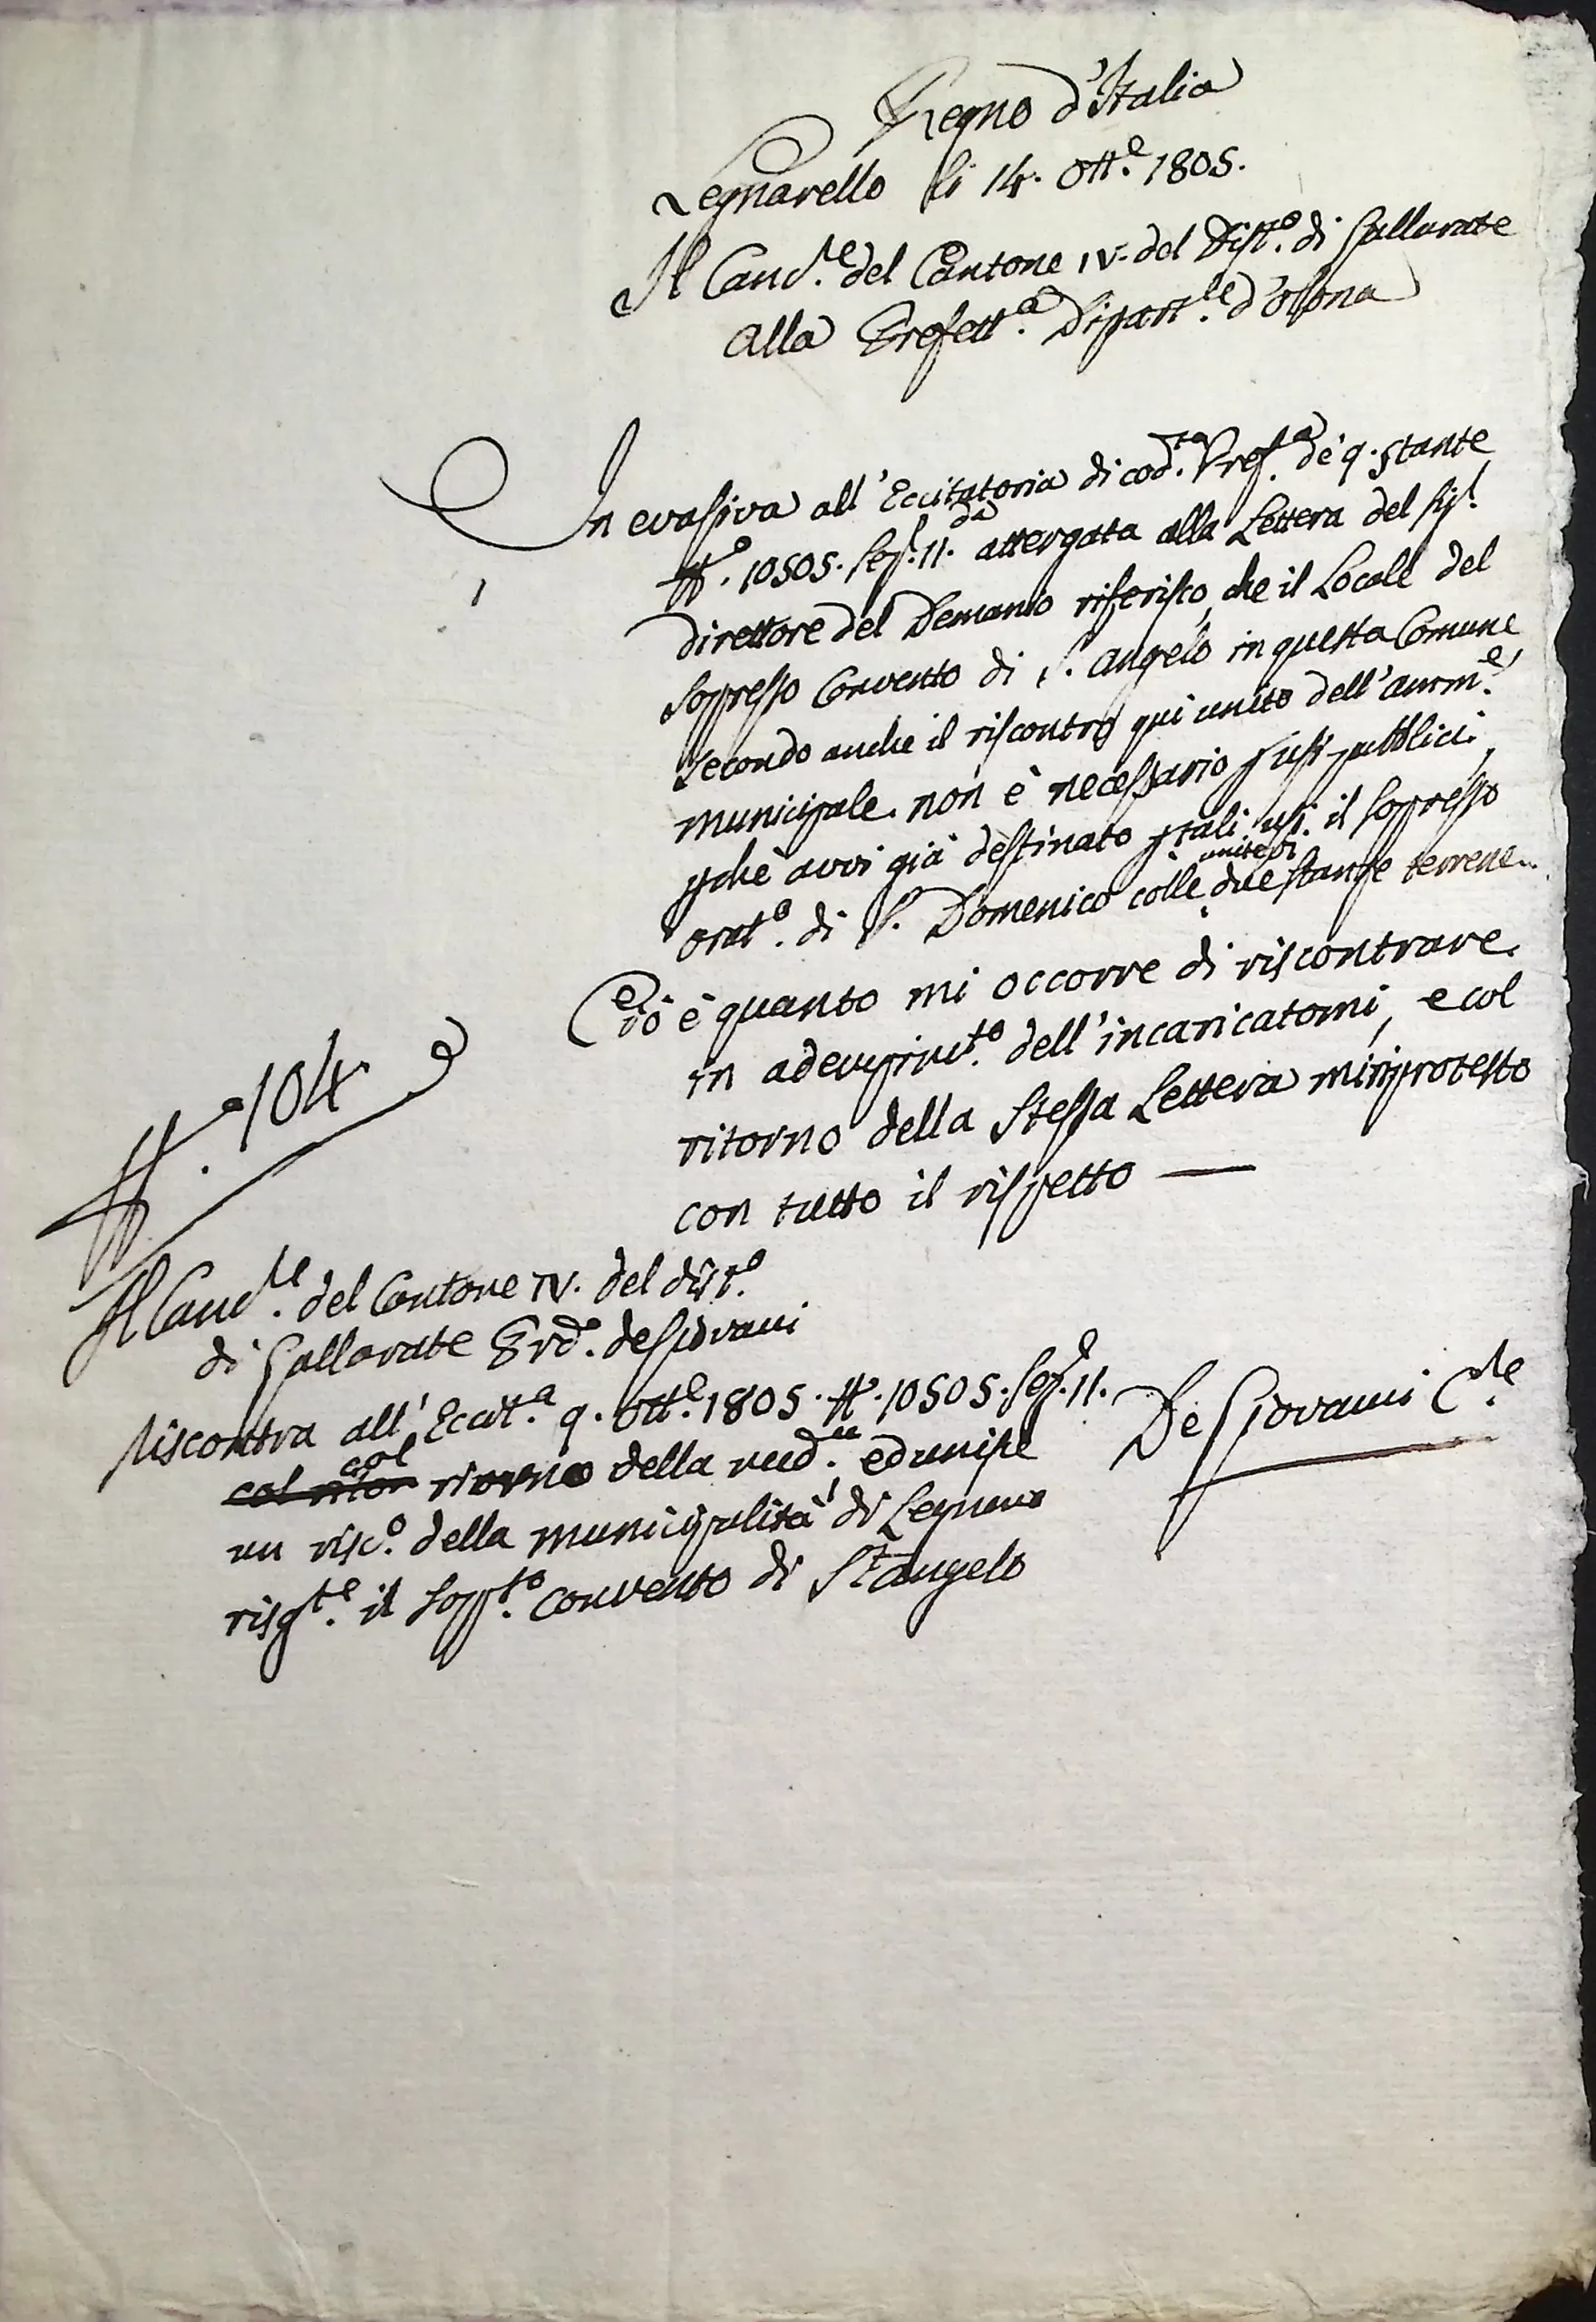 Regno d'Italia
Legnarello li 14. Ott.e 1805.
Il Canc.re del Cantone IV. del Dist.o di Gallarate
alla Prefett.a Dipart.le d'Olona
In evasiva all'Eccitatoria di cod.ta Pref.a de' 9. stante
N.o 10505. Sez. II.da attergata alla Lettera del Sig.r
direttore del Demanio riferisco, che il Locale del
soppresso Convento di S. Angelo in questa Comune,
secondo anche il riscontro qui unito dell'amm.e
municipale non è necessario p usi pubblici,
pchè avvi già destinato p tali usi il soppresso
orat.o di S. Domenico colle unitevi due stanze terrene.
Ciò è quanto mi occorre di riscontrare
in adempim.to dell'incaricatomi, e col
ritorno della stessa Lettera mi riprotesto
con tutto il rispetto —
N.o 104
Il Canc.re del Cantone IV. del dist.o
di Gallarate Erd.o de Giovanni
Riscontra all'Eccit.a 9. Ott.e 1805. N. 10505. Sez. II.
col ritor col ritorno della med.a, ed unisce
un risc.o della municipalità di Legnano
risg.te il sopp.to convento di S.t angelo
De Giovanni C.re